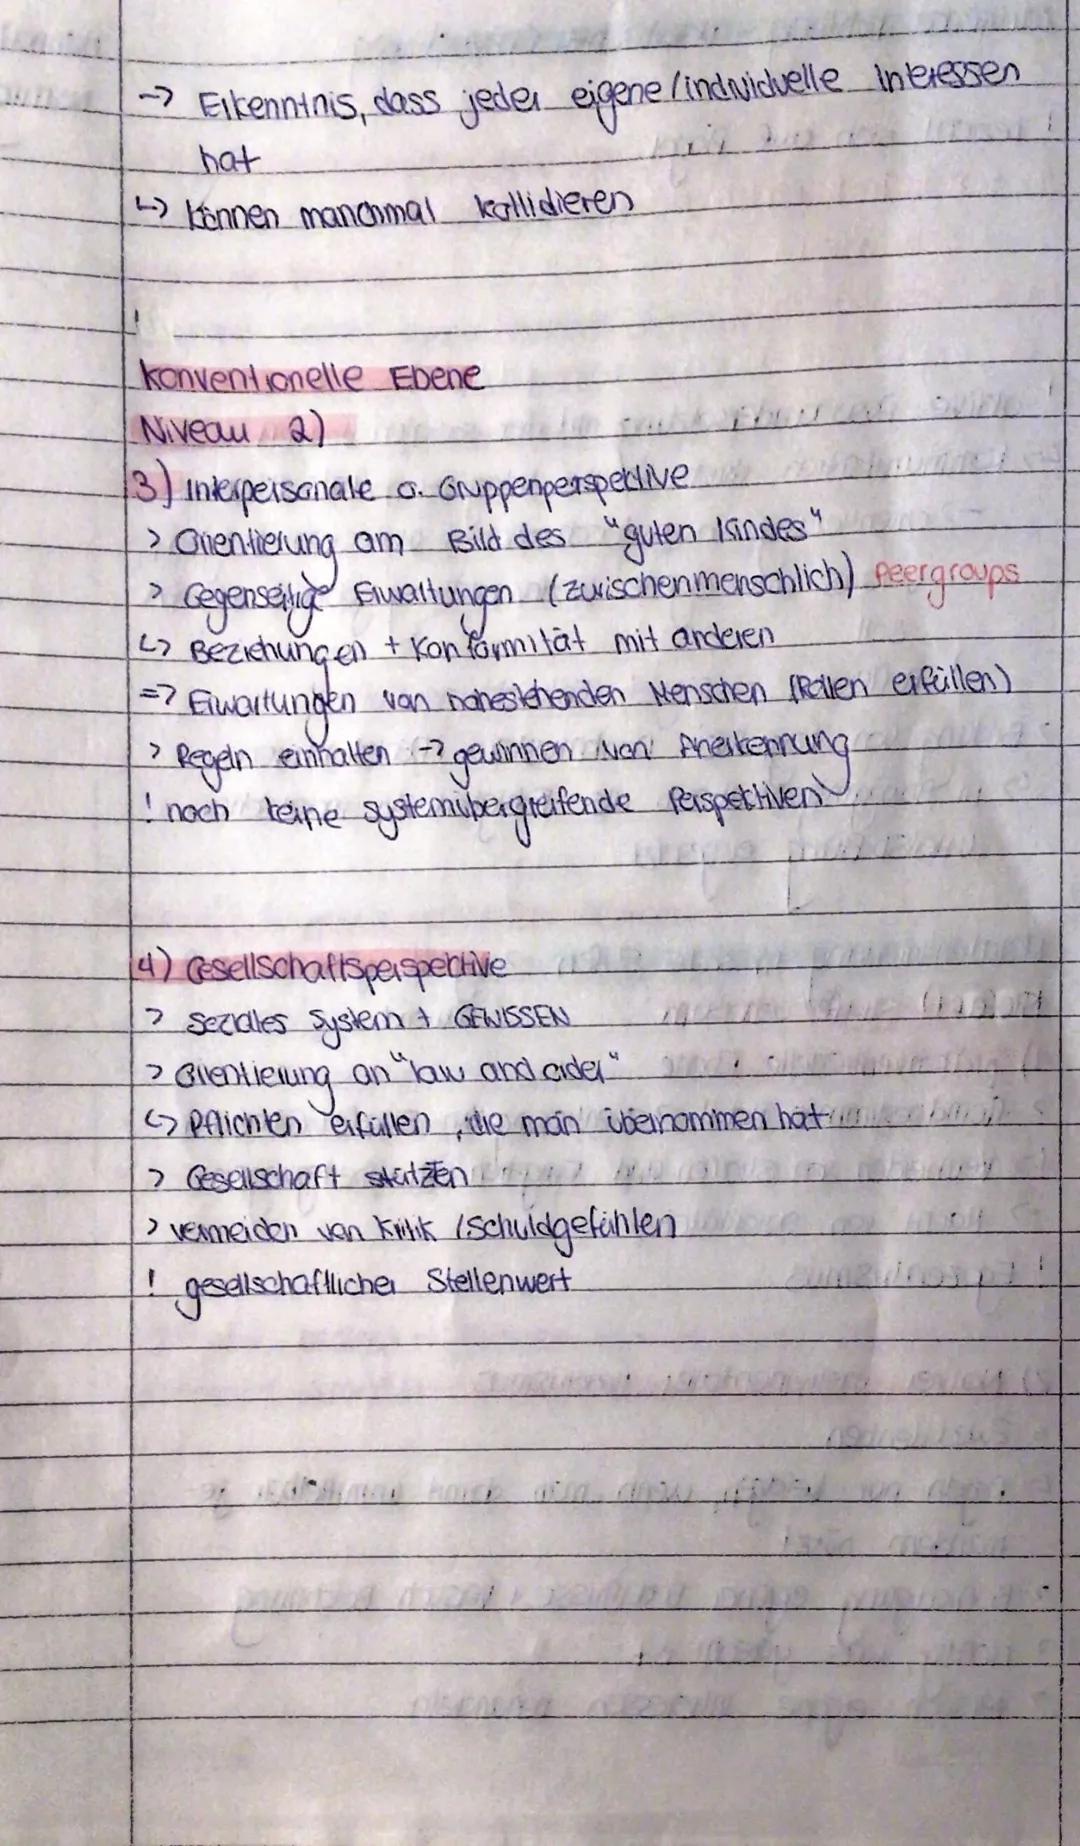 -> Erkenntnis, dass jeder eigene/individuelle Interessen
hat
↳ können manchmal kollidieren
!
Konventionelle Ebene
Niveau 2)
3) Interpersonale o. Gruppenperspektive
> Orientierung am Bild des "guten Kindes"
> Gegenseitige Erwartungen (zwischenmenschlich) Peergroups
↳ Beziehungen + Konformität mit anderen
=> Erwartungen von nahestehenden Menschen (Rollen erfüllen)
> Regeln einhalten -> gewinnen von Anerkennung
! noch keine systemübergreifende Perspektiven
4) Gesellschaftsperspektive
> soziales System + GEWISSEN
> Orientierung an "law and order"
↳ Pflichten erfüllen, die man übernommen hat
> Gesellschaft stützen
> vermeiden von Kritik /Schuldgefühlen
! gesellschaftlicher Stellenwert